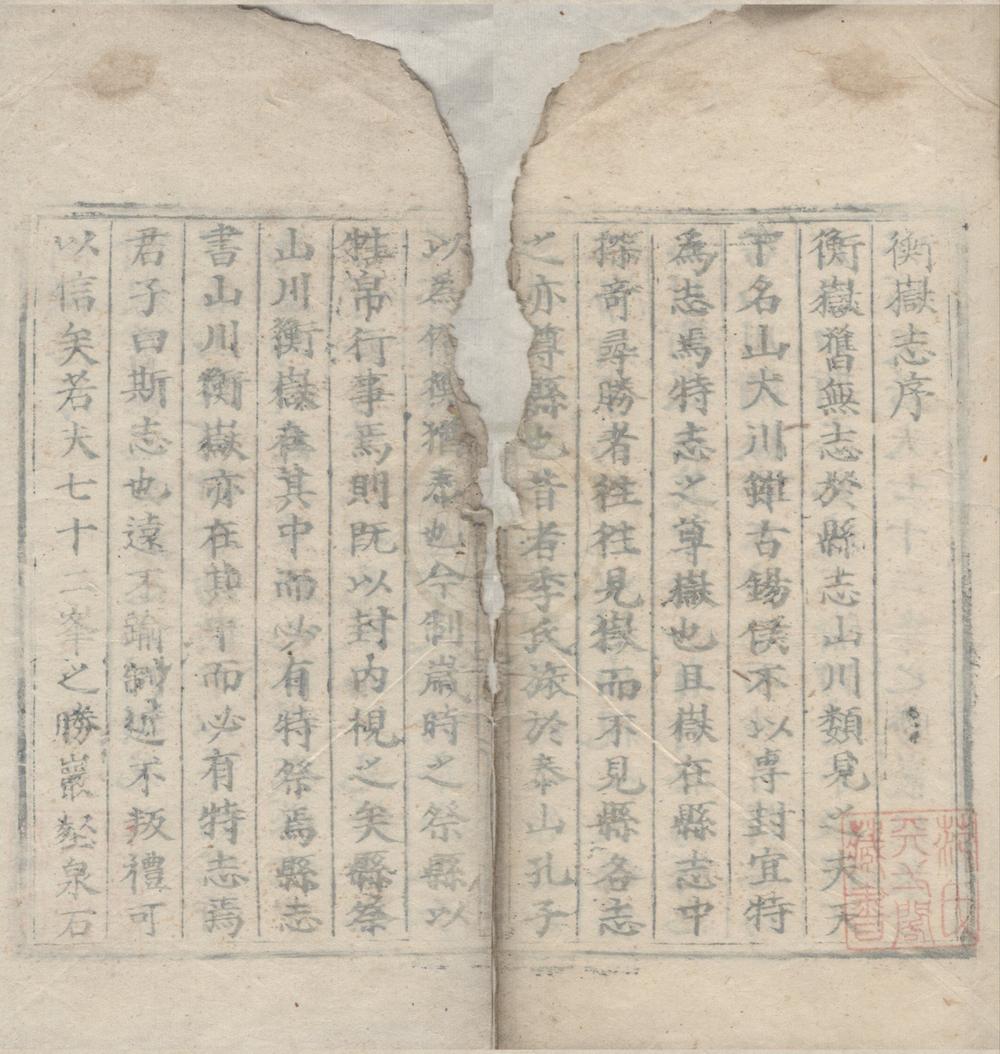 衡嶽志序
衡嶽舊無志於縣志山川類見之夫天
下名山大川雖古錫侯不以專封宜特
爲志焉特志之尊嶽也且嶽在縣志中
探奇尋勝者徃徃見嶽而不見縣各志
之亦尊縣也昔者季氏旅於泰山孔子
以爲僭也今制歲時之祭縣以
牲帛行事焉則既以封内視之矣縣祭
山川衡嶽在其中而必有特祭焉縣志
書山川衡嶽亦在其中而必有特志焉
君子曰斯志也遠不踰制近不叛禮可
以信矣若夫七十二峯之勝巖壑泉石